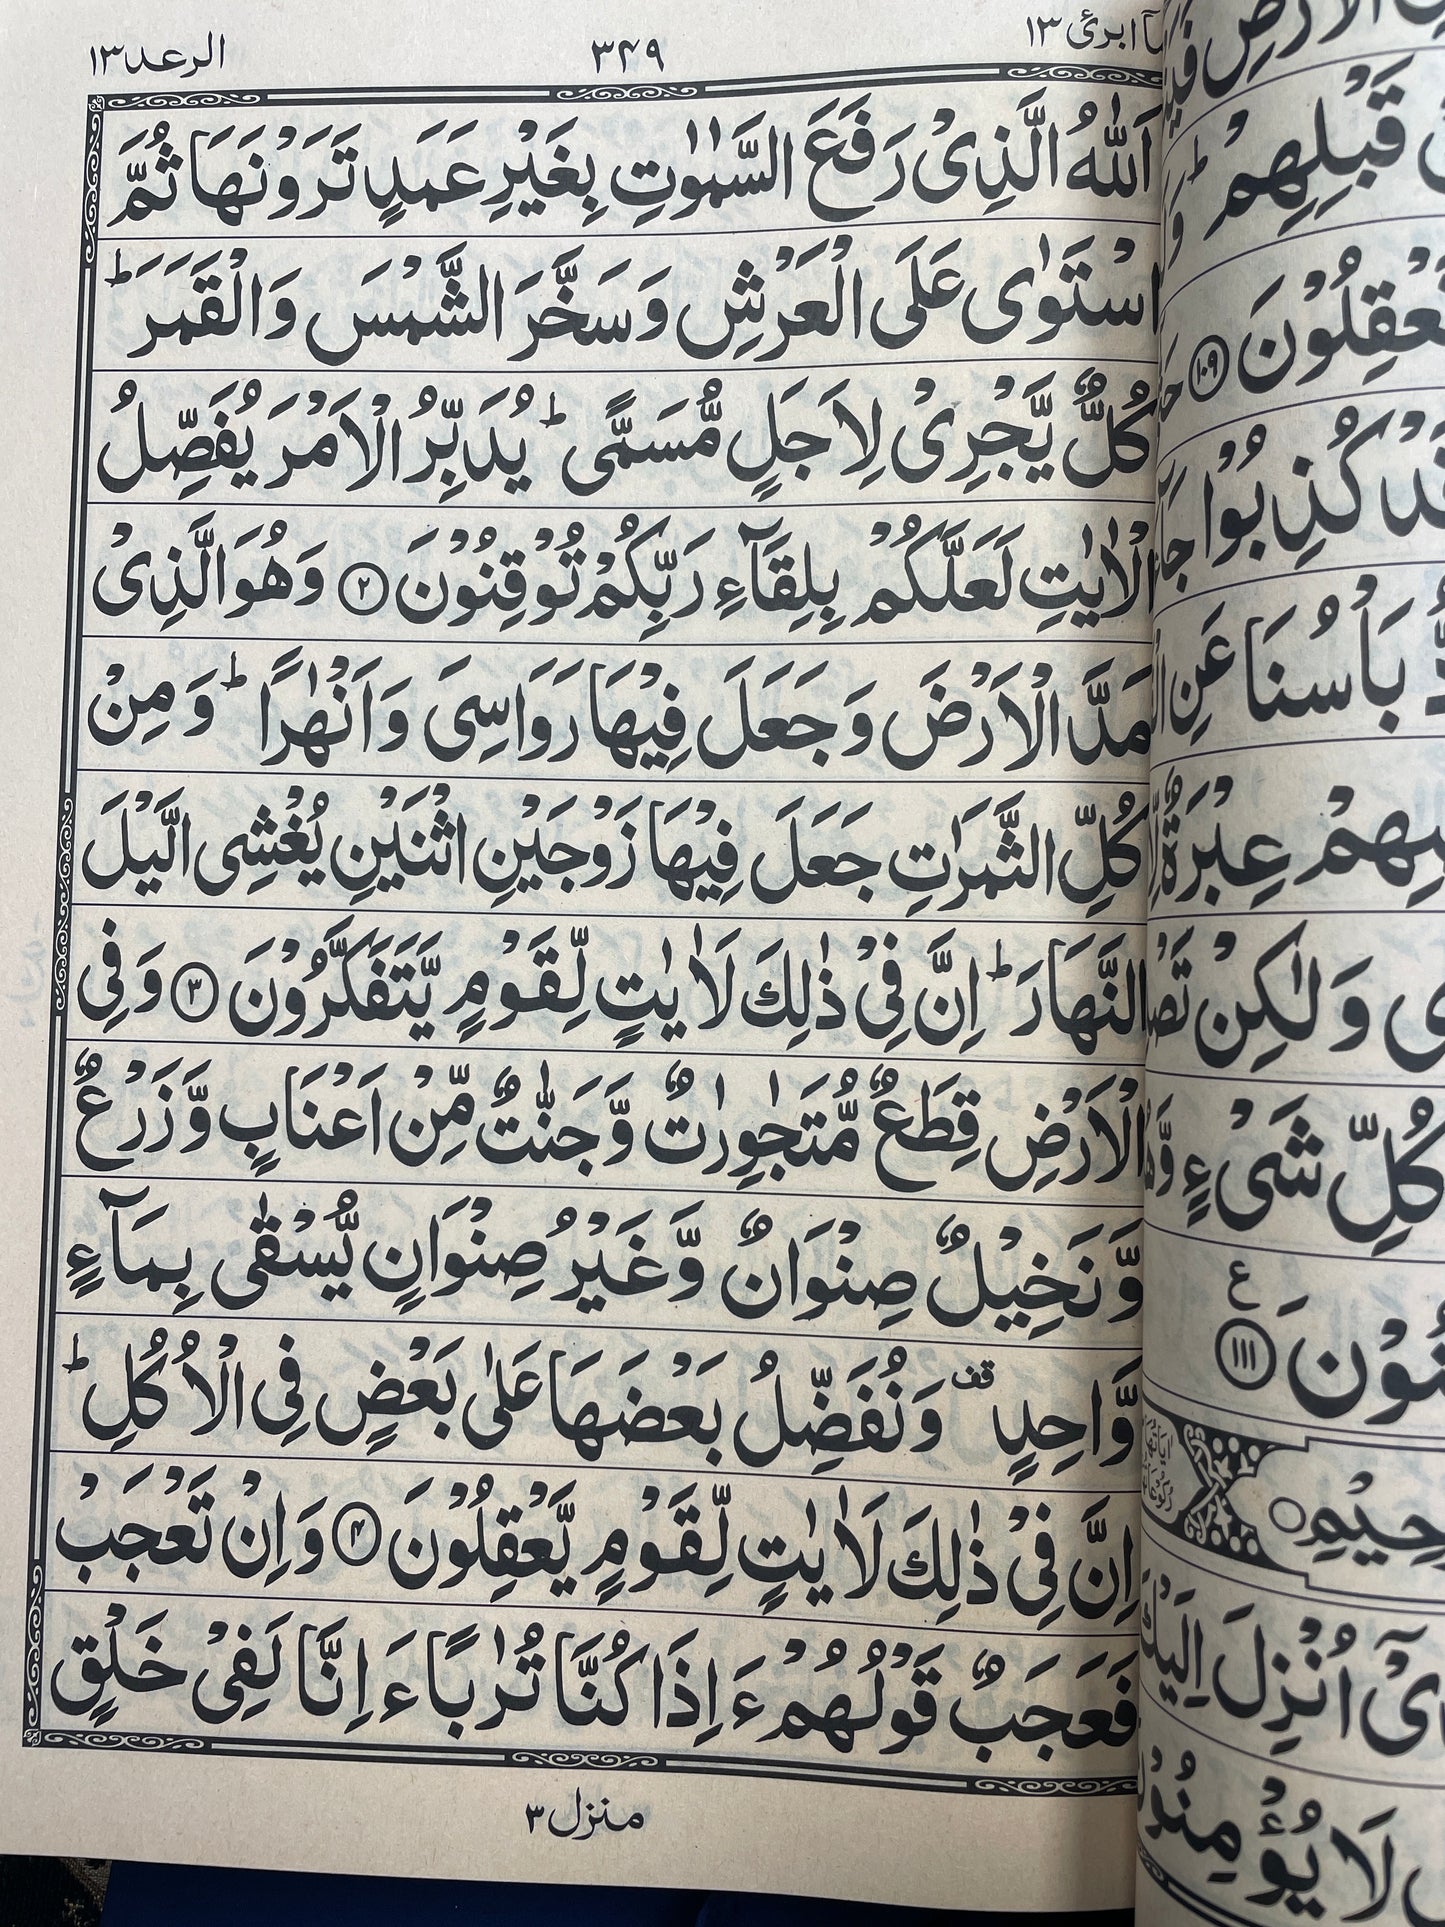 الرعد ١٣
٣٤٩
ابرئ ١٣
اَللّٰهُ الَّذِىْ رَفَعَ السَّمٰوٰتِ بِغَيْرِ عَمَدٍ تَرَوْنَهَا ثُمَّ
اسْتَوٰى عَلَى الْعَرْشِ وَسَخَّرَ الشَّمْسَ وَالْقَمَرَ ؕ
كُلٌّ يَّجْرِىْ لِاَجَلٍ مُّسَمًّى ؕ يُدَبِّرُ الْاَمْرَ يُفَصِّلُ
الْاٰيٰتِ لَعَلَّكُمْ بِلِقَآءِ رَبِّكُمْ تُوْقِنُوْنَ ٢ وَهُوَ الَّذِىْ
مَدَّ الْاَرْضَ وَجَعَلَ فِيْهَا رَوَاسِىَ وَاَنْهٰرًا ؕ وَمِنْ
كُلِّ الثَّمَرٰتِ جَعَلَ فِيْهَا زَوْجَيْنِ اثْنَيْنِ يُغْشِى الَّيْلَ
النَّهَارَ ؕ اِنَّ فِىْ ذٰلِكَ لَاٰيٰتٍ لِّقَوْمٍ يَّتَفَكَّرُوْنَ ٣ وَفِى
الْاَرْضِ قِطَعٌ مُّتَجٰوِرٰتٌ وَّجَنّٰتٌ مِّنْ اَعْنَابٍ وَّزَرْعٌ
وَّنَخِيْلٌ صِنْوَانٌ وَّغَيْرُ صِنْوَانٍ يُّسْقٰى بِمَآءٍ
وَّاحِدٍ قف وَنُفَضِّلُ بَعْضَهَا عَلٰى بَعْضٍ فِى الْاُكُلِ ؕ
اِنَّ فِىْ ذٰلِكَ لَاٰيٰتٍ لِّقَوْمٍ يَّعْقِلُوْنَ ٤ وَاِنْ تَعْجَبْ
فَعَجَبٌ قَوْلُهُمْ ءَاِذَا كُنَّا تُرٰبًا ءَاِنَّا لَفِىْ خَلْقٍ
منزل ٣
قَبْلِهِمْ ؕ
١٠٩
كُذِبُوْا
بَاْسُنَا عَنِ
عِبْرَةٌ
وَلٰكِنْ
كُلِّ شَىْءٍ
ع
١١١
اُنْزِلَ اِلَيْكَ
لَا يُؤْمِنُوْنَ